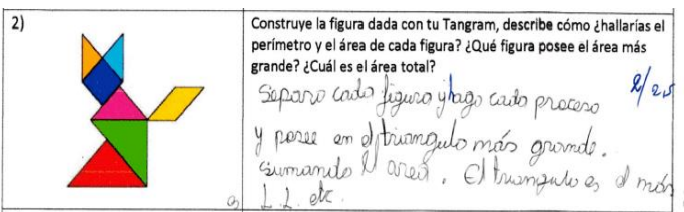 2)
Construye la figura dada con tu Tangram, describe cómo ¿hallarías el
perímetro y el área de cada figura? ¿Qué figura posee el área más
grande? ¿Cuál es el área total?
Separo cada figura y hago cada proceso
y posee en el triangulo más grande.
sumando el area. El triangulo es el más
L.L. etc.